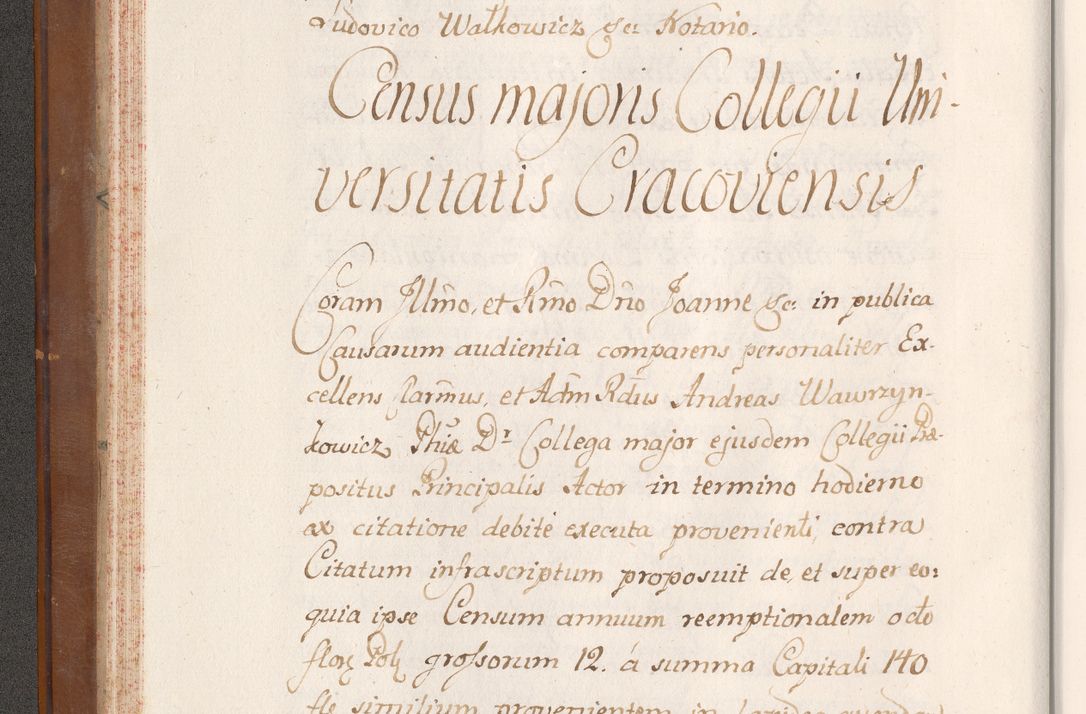 Ludovico Walkowicz &c: Notario.
Census majoris Collegii Uni-
versitatis Cracoviensis
Coram Illm̃o, et Rm̃o Dño Joanne &c: in publica
Causarum audientia comparens personaliter Ex-
cellens Clarm̃us, et Adm̃ Rdũs Andreas Wawrzyn-
kowicz Phiæ Dr Collega major ejusdem Collegii Præ-
positus Principalis Actor in termino hodierno
ex citatione debitè executa provenienti, contra
Citatum infrascriptum proposuit de, et super eo:
quia ipse Censum annuum reemptionalem octo
flor Pol grossorum 12. à summa Capitali 140
fl similium provenientem in